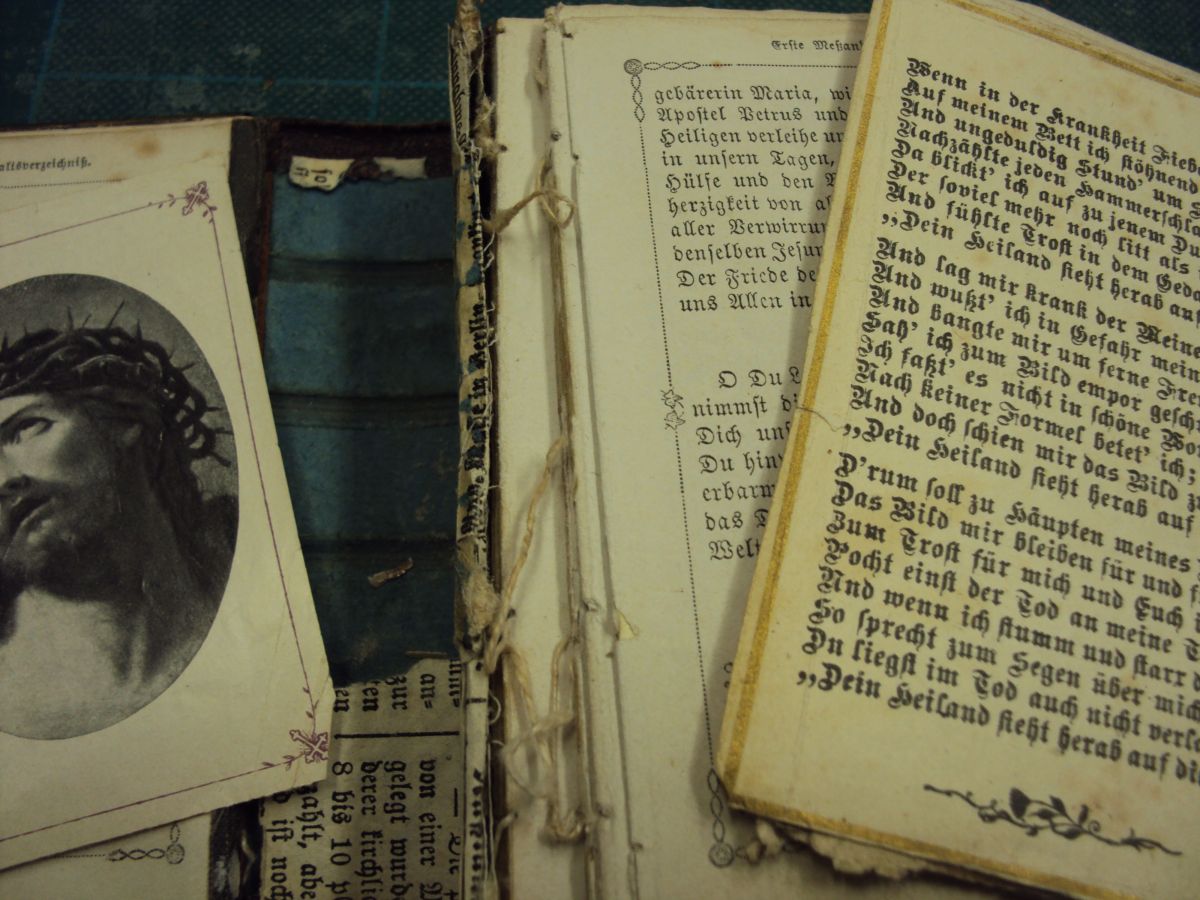 altsverzeichniß.
Erste Meßan
gebärerin Maria, wi
Apostel Petrus und
Heiligen verleihe un
in unsern Tagen,
Hülfe und den
herzigkeit von al
aller Verwirrun
denselben Jesum
Der Friede de
uns Allen in
O Du L
nimmst di
Dich uns
Du hin
erbarm
das
Welt
Wenn in der Krankheit Fieb
Auf meinem Bett ich stöhnend
Und ungeduldig Stund' um S
Nachzählte jeden Hammerschla
Da blickt' ich auf zu jenem Du
Der soviel mehr noch litt als
Und fühlte Trost in dem Geda
„Dein Heiland sieht herab auf
Und lag mir krank der Meine
Und wußt' ich in Gefahr mein
Und bangte mir um ferne Fre
Sah' ich zum Bild empor gesch
Ich faßt' es nicht in schöne Wo
Nach keiner Formel betet' ich;
Und doch schien mir das Bild z
„Dein Heiland sieht herab auf
D'rum soll zu Häupten meines
Das Bild mir bleiben für und f
Zum Trost für mich und Euch i
Pocht einst der Tod an meine T
Und wenn ich stumm und starr d
So sprecht zum Segen über mich
Du liegst im Tod auch nicht verl
„Dein Heiland sieht herab auf di
an=
zur
ten
en
von einer
gelegt wurd
derer kirchli
8 bis 10
zahlt, abe
ist noch
in Berlin.